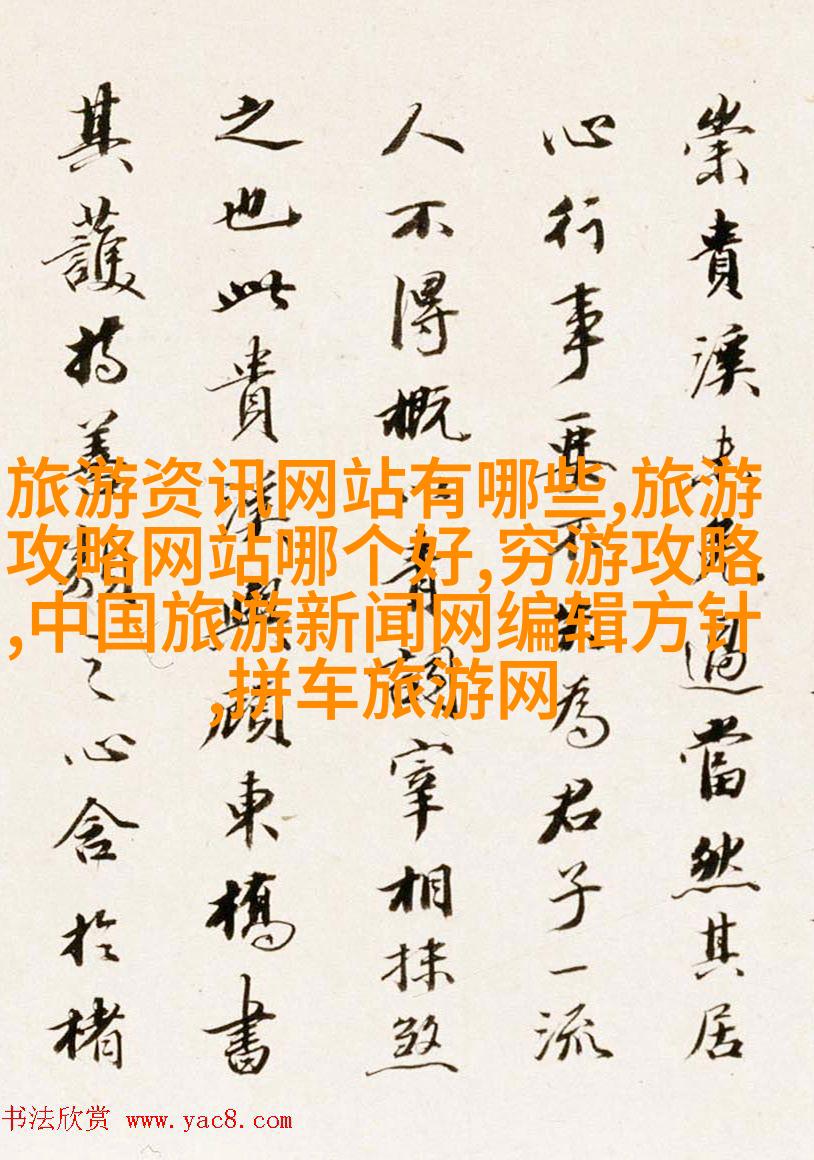 崇貴溪未免過當然其居
心行事要不為君子一流
人不得概以青詞宰相抹煞
之也此貴溪與顧東橋書
其護持善類之心含於楮
旅游资讯网站有哪些,旅游
攻略网站哪个好,穷游攻略
,中国旅游新闻网编辑方针
,拼车旅游网
书法欣赏 www.yac8.com